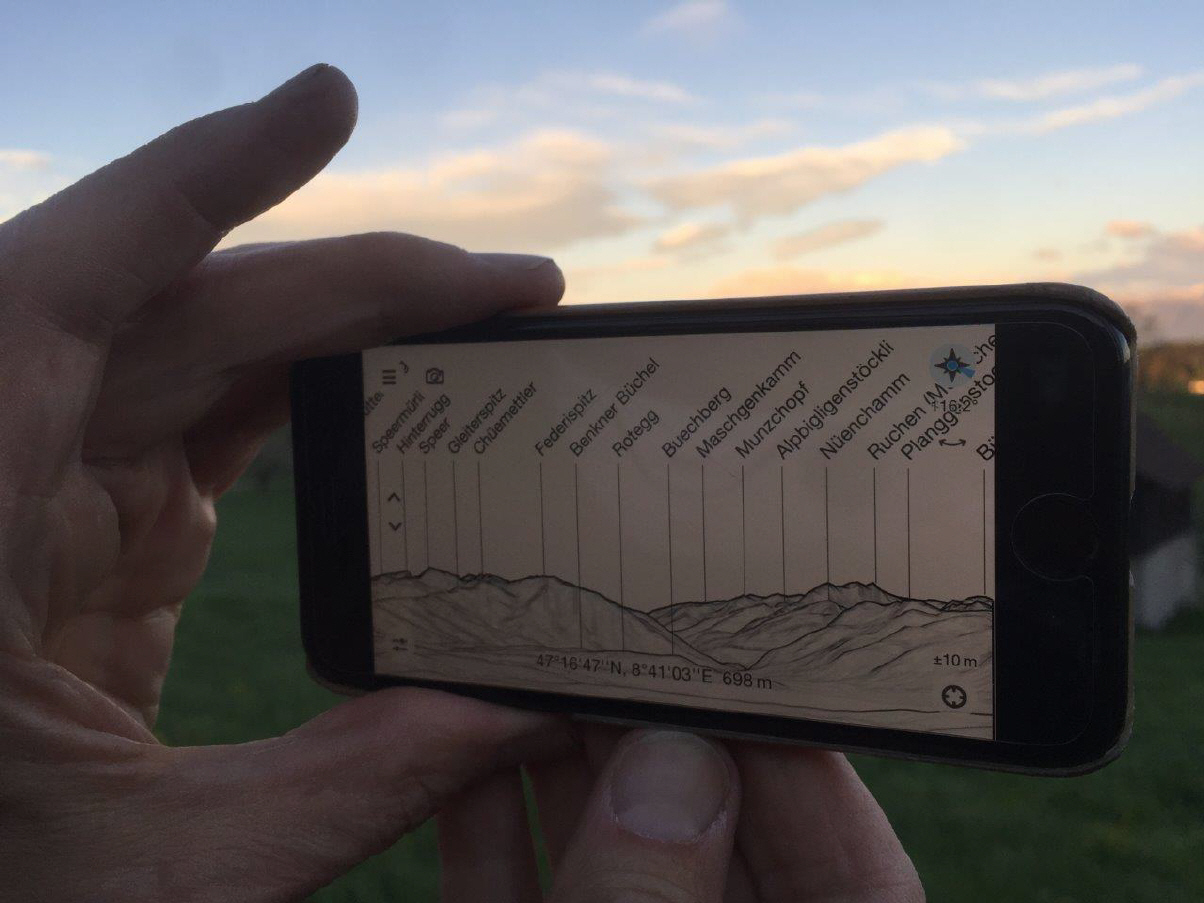 Speermürli
Hinterrugg
Speer
Gleiterspitz
Chüemettler
Federispitz
Benkner Büchel
Rotegg
Buechberg
Maschgenkamm
Munzchopf
Alpbigligenstöckli
Nüenchamm
Ruchen
47°16'47''N, 8°41'03''E 698 m
±10 m